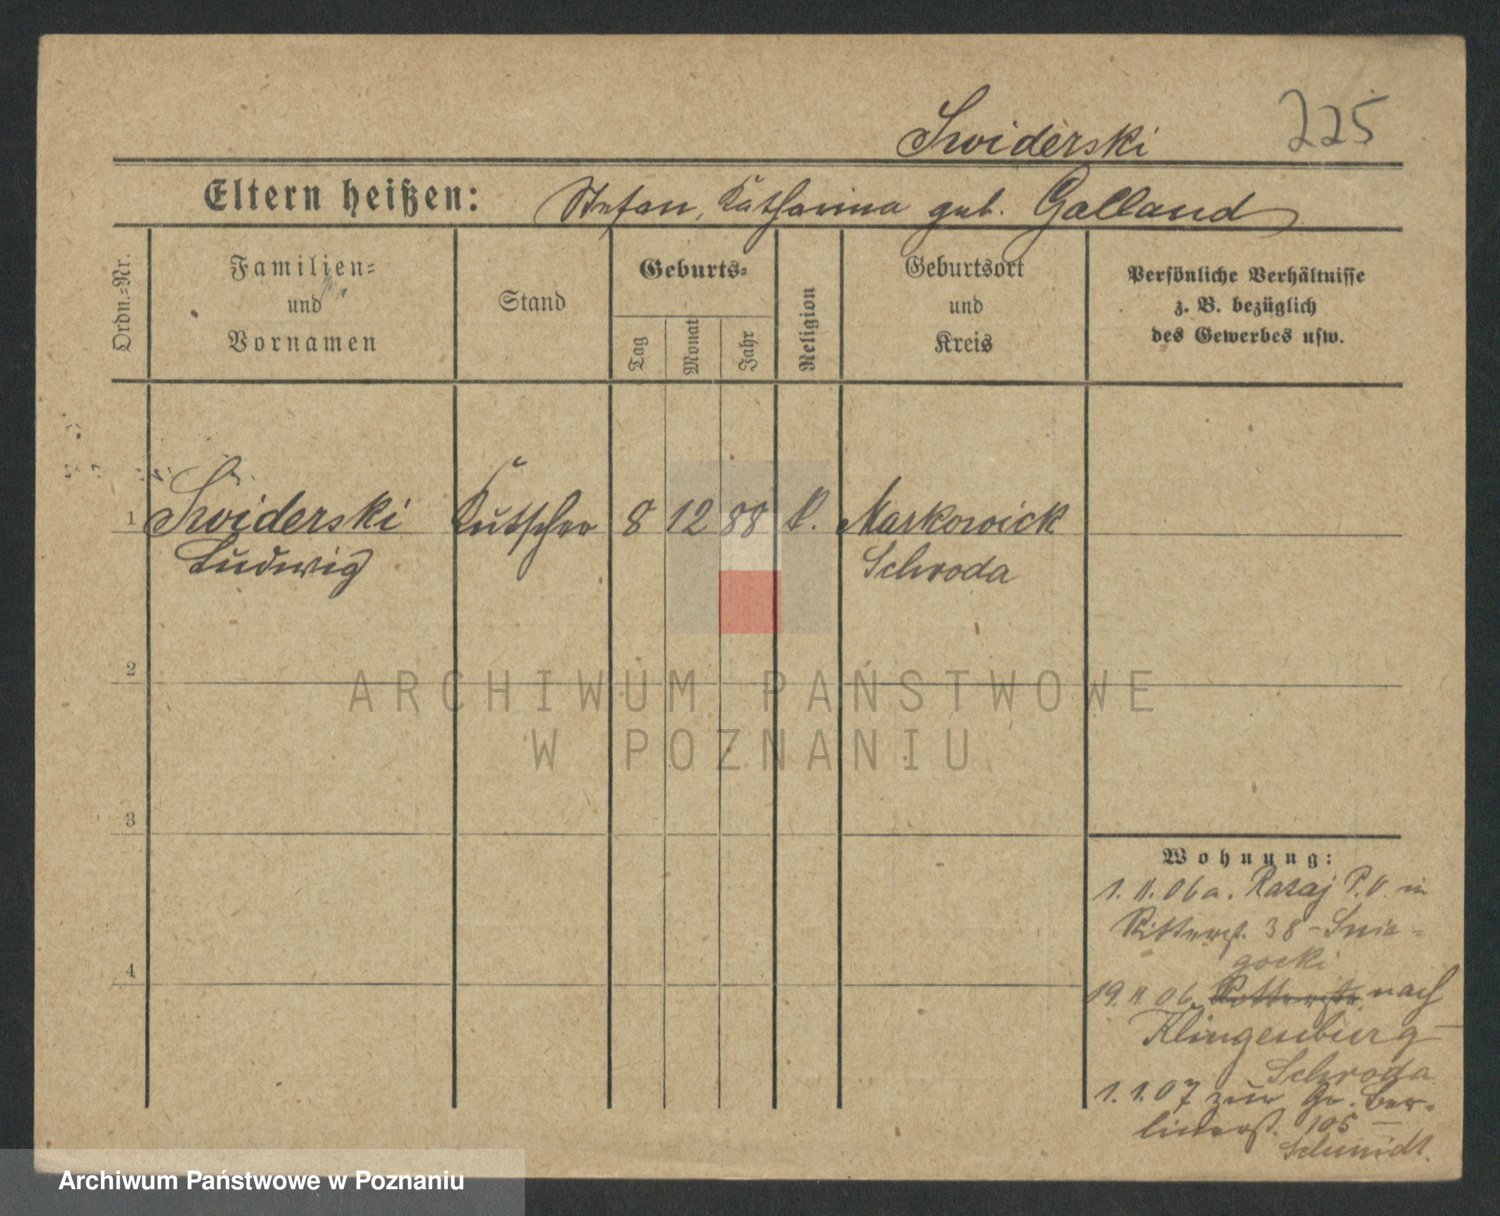 Swiderski 225
Eltern heißen: Stefan, Katharina geb. Galland
Ordn.-Nr.
Familien-
und
Vornamen
Stand
Geburts-
Tag
Monat
Jahr
Religion
Geburtsort
und
Kreis
Persönliche Verhältnisse
z. B. bezüglich
des Gewerbes usw.
1 Swiderski Kutscher 8 12 88 k. Markowick
Ludwig Schroda
2
ARCHIWUM PAŃSTWOWE
W POZNANIU
3
Wohnung:
1.11.06 a. Rataj P.O. in
Ritterst. 38 - Snie-
gocki
4
19.11.06. nach
Klingenburg -
Schroda
1.1.07 zur Gr. Ber-
linerst. 105 -
Schmidt.
Archiwum Państwowe w Poznaniu